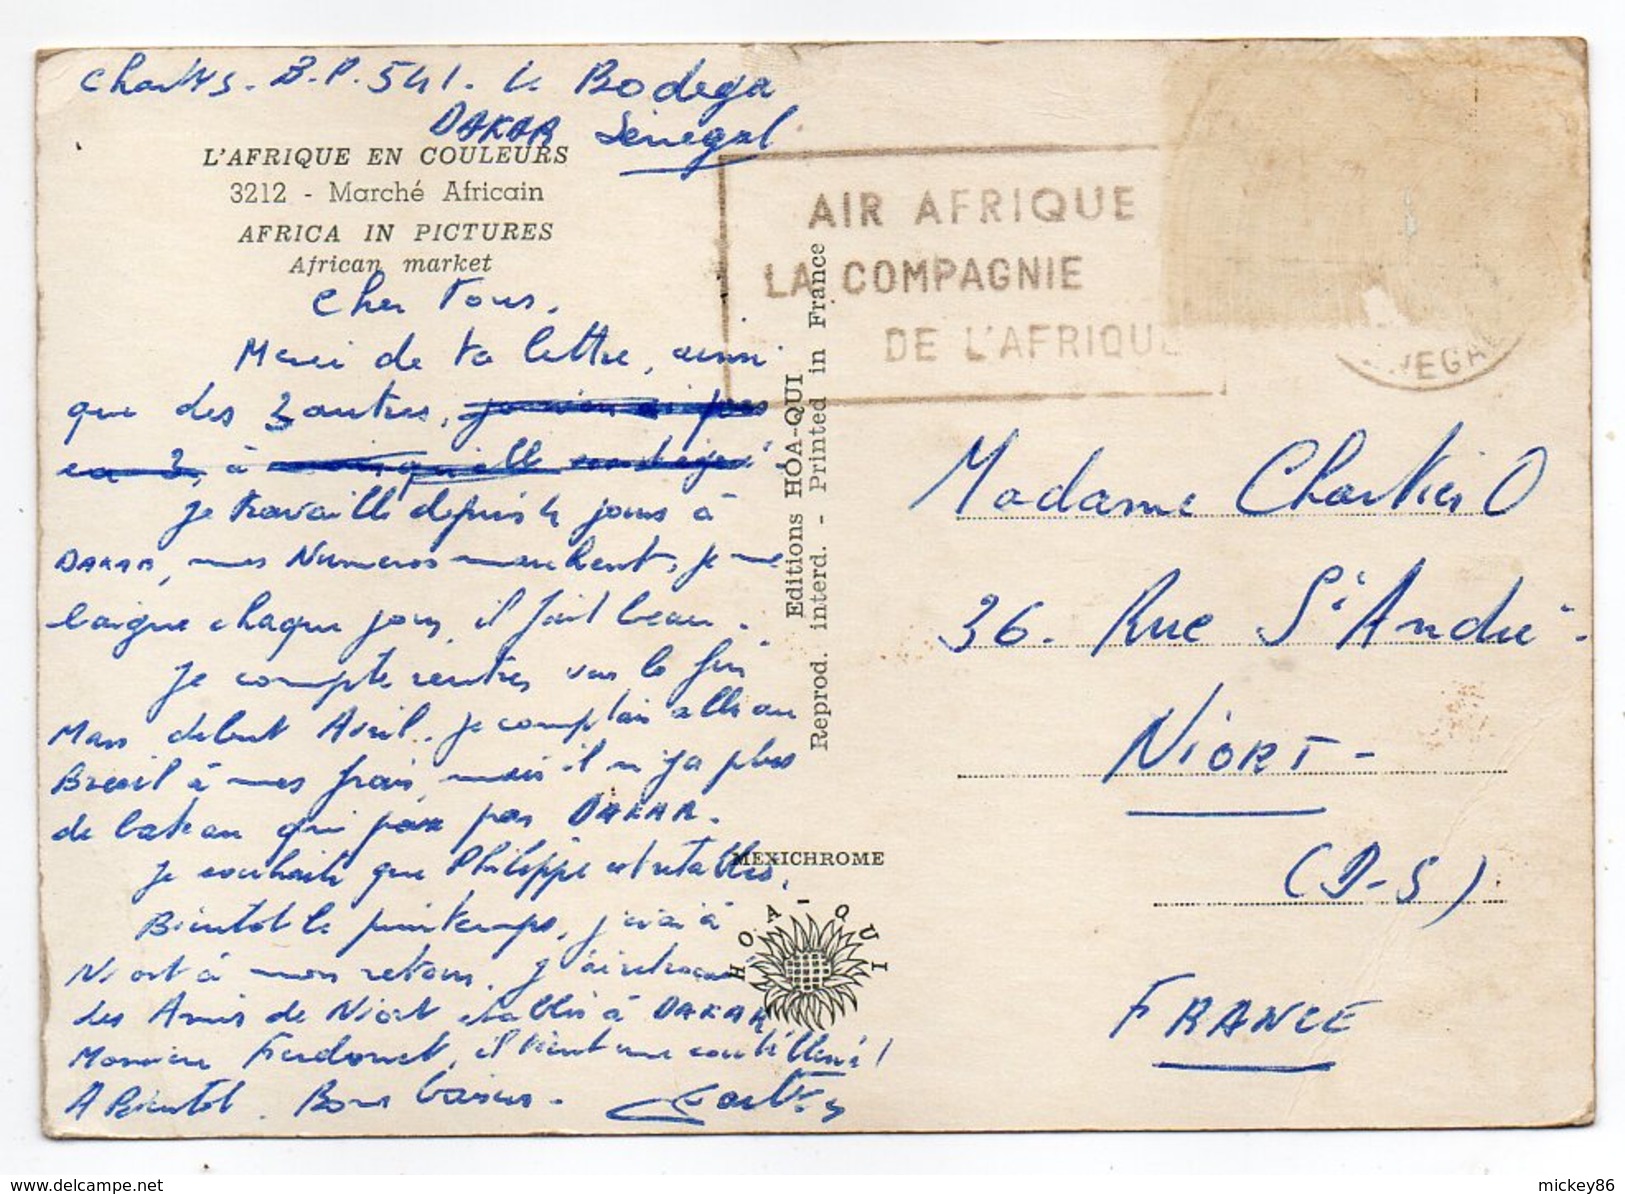 B.P. 541. Le Bodega
DAKAR Sénégal
L'AFRIQUE EN COULEURS
3212 - Marché Africain
AFRICA IN PICTURES
African market
Cher Tous,
Merci de ta lettre, ainsi
que des 3 autres,
à
je travaille depuis 4 jours à
DAKAR, mes Numeros marchent, je me
baigne chaque jour, il fait beau.
Je compte rentrer vers la fin
Mars debut Avril. je comptais aller au
Bresil à mes frais, mais il n'y a plus
de bateau qui par DAKAR.
Je souhaite que Philippe est retabli,
Bientot le printemps, j'irai à
Niort à mon retour, j'ai retrouvé
des Amis de Niort etablis à DAKAR
Monsieur, il tient une
A Bientot. Bons baisers.
AIR AFRIQUE
LA COMPAGNIE
DE L'AFRIQUE
Editions HOA-QUI
Reprod. interd. - Printed in France
MEXICHROME
HOA-QUI
Madame Chartier O
36. Rue St André.
NIORT-
(D-S)
FRANCE
www.delcampe.net
mickey86